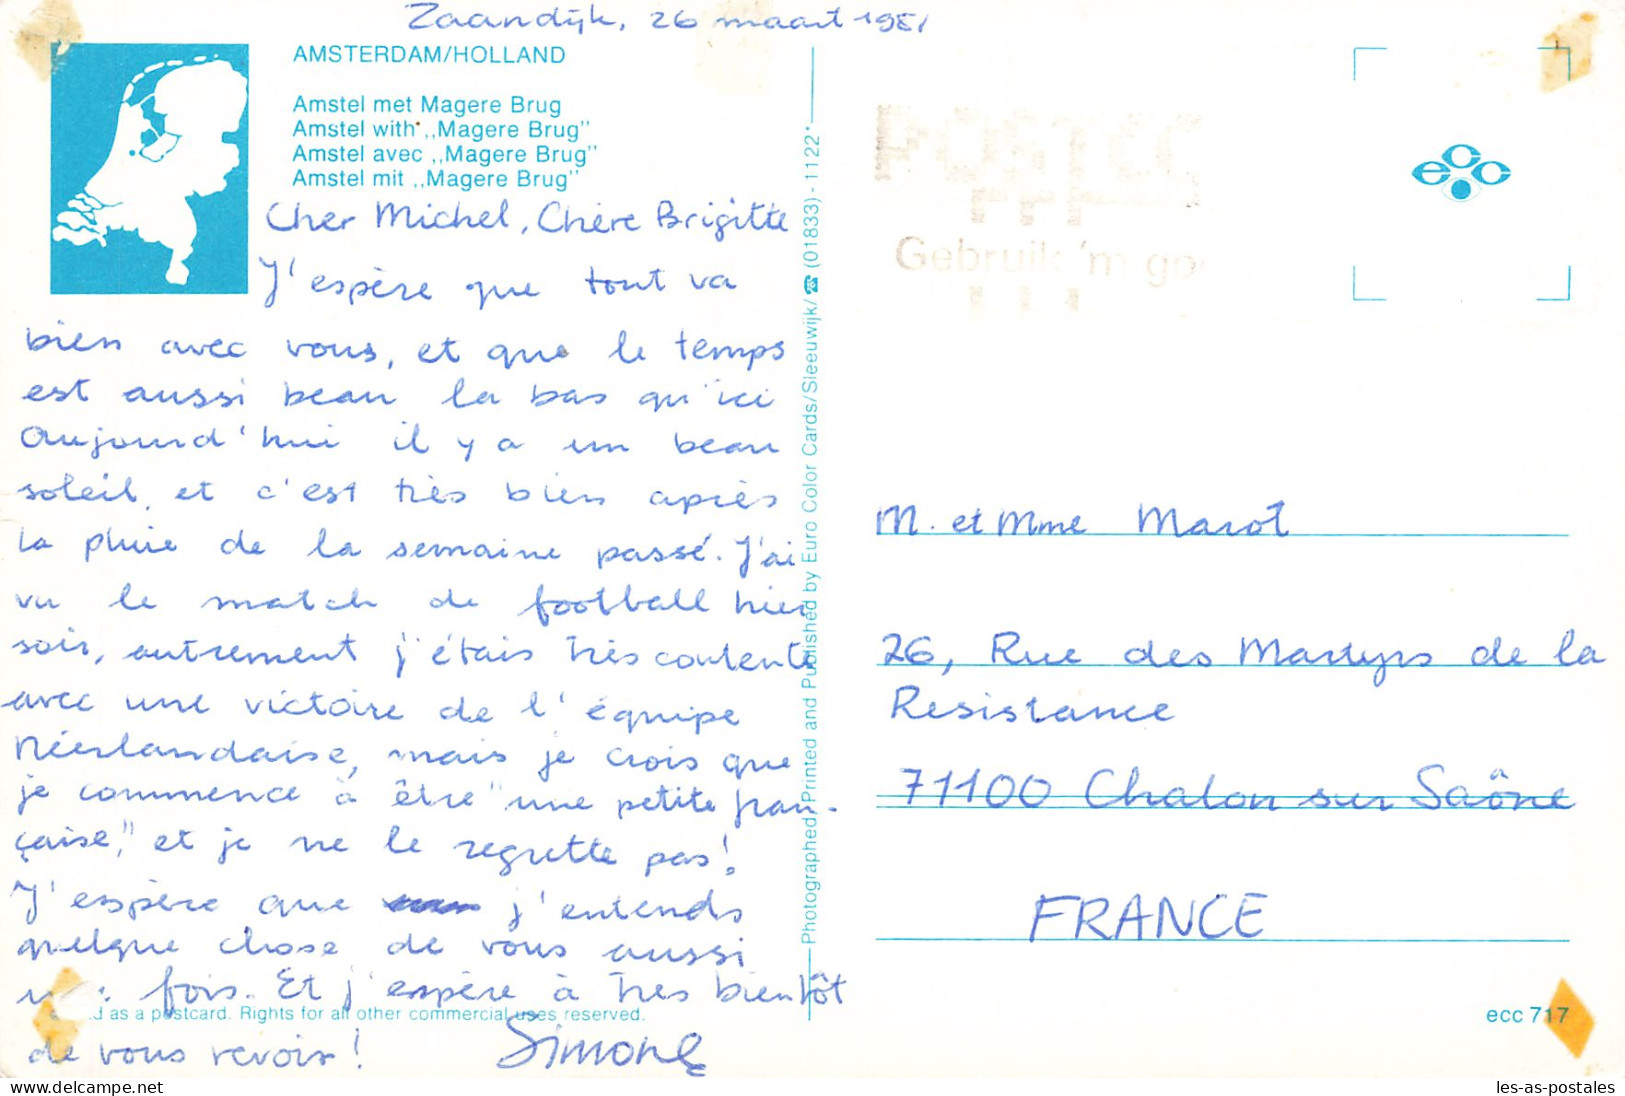 Zaandijk, 26 maart 1981
AMSTERDAM/HOLLAND
Amstel met Magere Brug
Amstel with „Magere Brug"
Amstel avec „Magere Brug"
Amstel mit „Magere Brug"
Cher Michel, Chère Brigitte
J'espère que tout va
bien avec vous, et que le temps
est aussi beau la bas qu'ici
Aujourd'hui il y a un beau
soleil, et c'est très bien après
la pluie de la semaine passé. J'ai
vu le match de football hier
soir, autrement j'étais très contente
avec une victoire de l'équipe
Néerlandaise, mais je crois que
je commence à être "une petite fran-
çaise," et je ne le regrette pas!
J'espère que j'entends
quelque chose de vous aussi
fois. Et j'espère à très bientôt
de vous revoir! Simone
as a postcard. Rights for all other commercial uses reserved.
Photographed, Printed and Published by Euro Color Cards/Sleeuwijk/☎ (01833) - 1122*
POSTCO
Gebruik 'm go
ecc
M. et Mme Marot
26, Rue des Martyrs de la
Resistance
71100 Chalon sur Saône
FRANCE
ecc 717
www.delcampe.net
les-as-postales